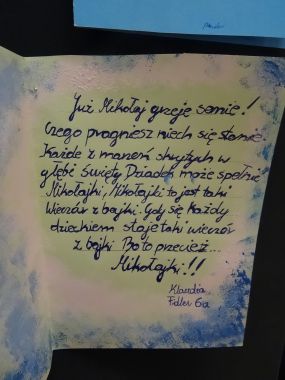 Już Mikołaj grzeje sanie!
Czego pragniesz niech się stanie.
Każde z marzeń skrytych w
głębi Święty Dziadek może spełnić
Mikołajki, Mikołajki to jest taki
Wieczór z bajki. Gdy się każdy
dzieckiem staje taki wieczór
z bajki Bo to przecież...
Mikołajki!!
Klaudia
Fidler 6a